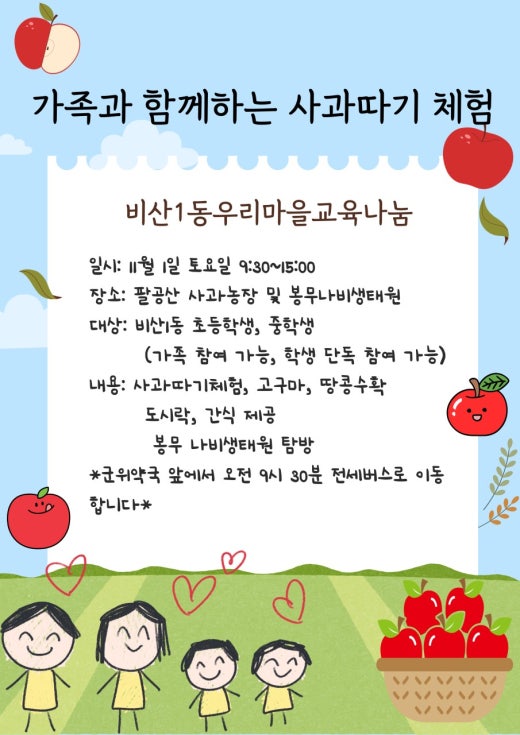 가족과 함께하는 사과따기 체험
비산1동우리마을교육나눔
일시: 11월 1일 토요일 9:30~15:00
장소: 팔공산 사과농장 및 봉무나비생태원
대상: 비산1동 초등학생, 중학생
(가족 참여 가능, 학생 단독 참여 가능)
내용: 사과따기체험, 고구마, 땅콩수확
도시락, 간식 제공
봉무 나비생태원 탐방
*군위약국 앞에서 오전 9시 30분 전세버스로 이동
합니다*